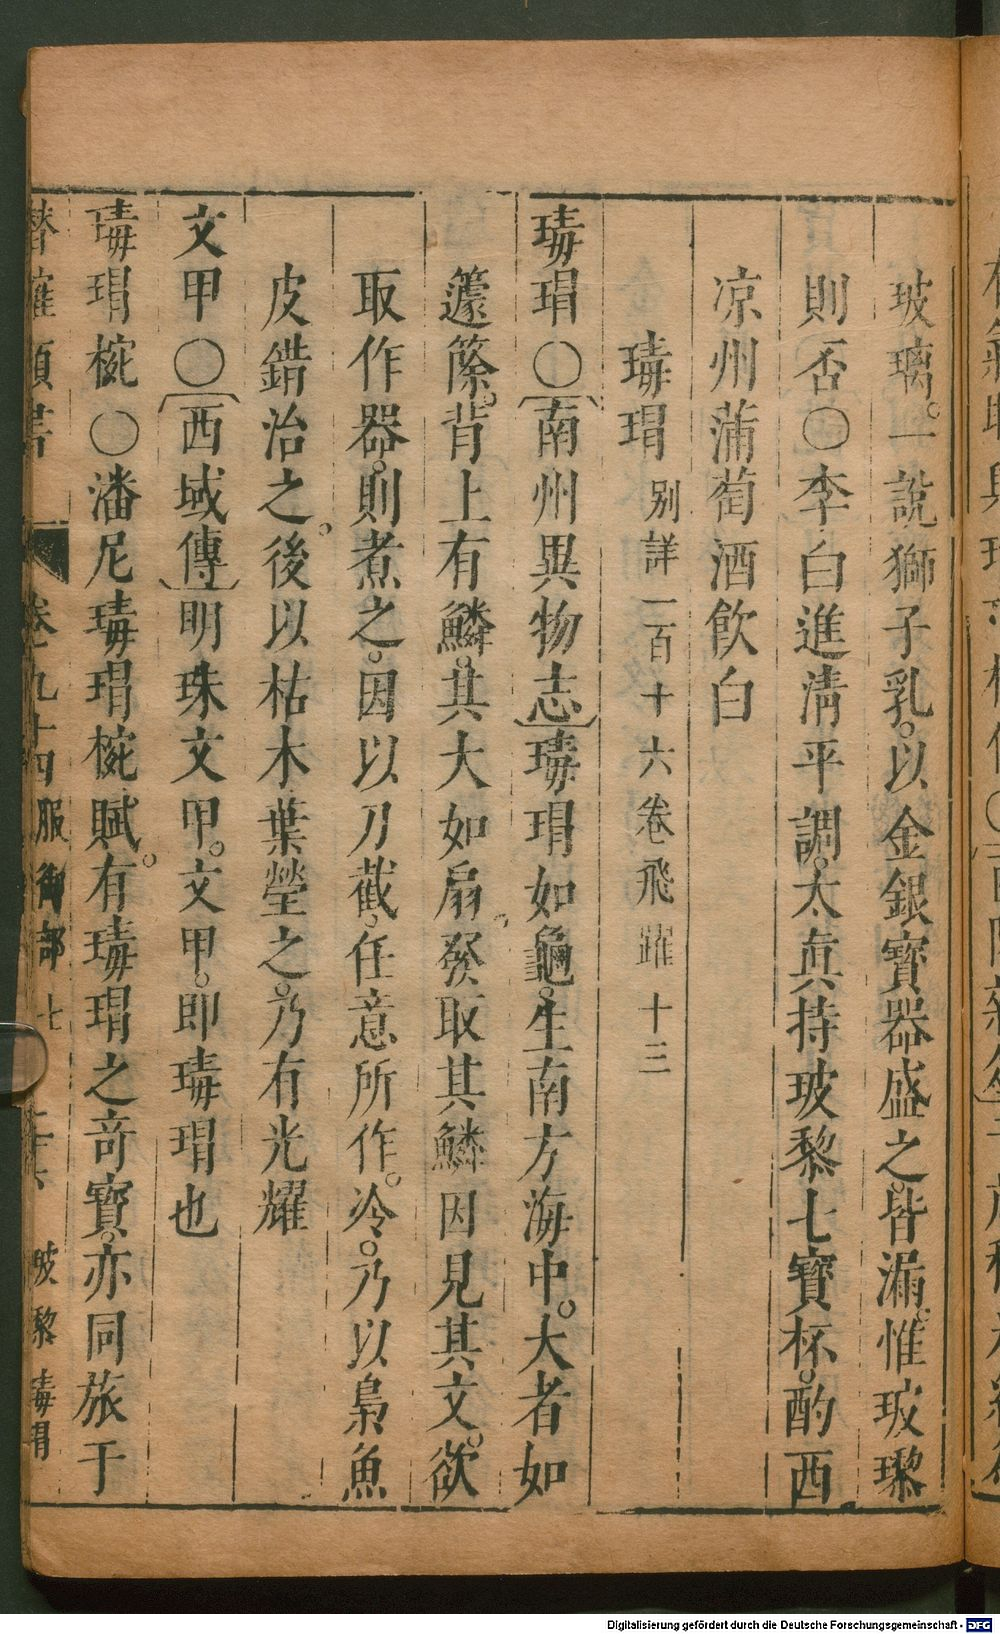 玻璃。一說獅子乳。以金銀寶器盛之。皆漏。惟玻瓈
則否○李白進淸平調。太眞持玻黎七寶杯。酌西
凉州蒲萄酒飮白
瑇瑁 别詳一百十六卷飛躍十三
瑇瑁○南州異物志瑇瑁如龜。生南方海中。大者如
籧篨。背上有鱗。其大如扇。發取其鱗因見其文。欲
取作器。則煮之。因以刀截。任意所作。冷。乃以梟魚
皮錯治之。後以枯木葉瑩之。乃有光耀
文甲○西域傳明珠文甲。文甲。即瑇瑁也
瑇瑁椀○潘尼瑇瑁椀賦。有瑇瑁之竒寶。亦同旅于
卷九十四 服御部七 玻黎 瑇瑁
Digitalisierung gefördert durch die Deutsche Forschungsgemeinschaft - DFG